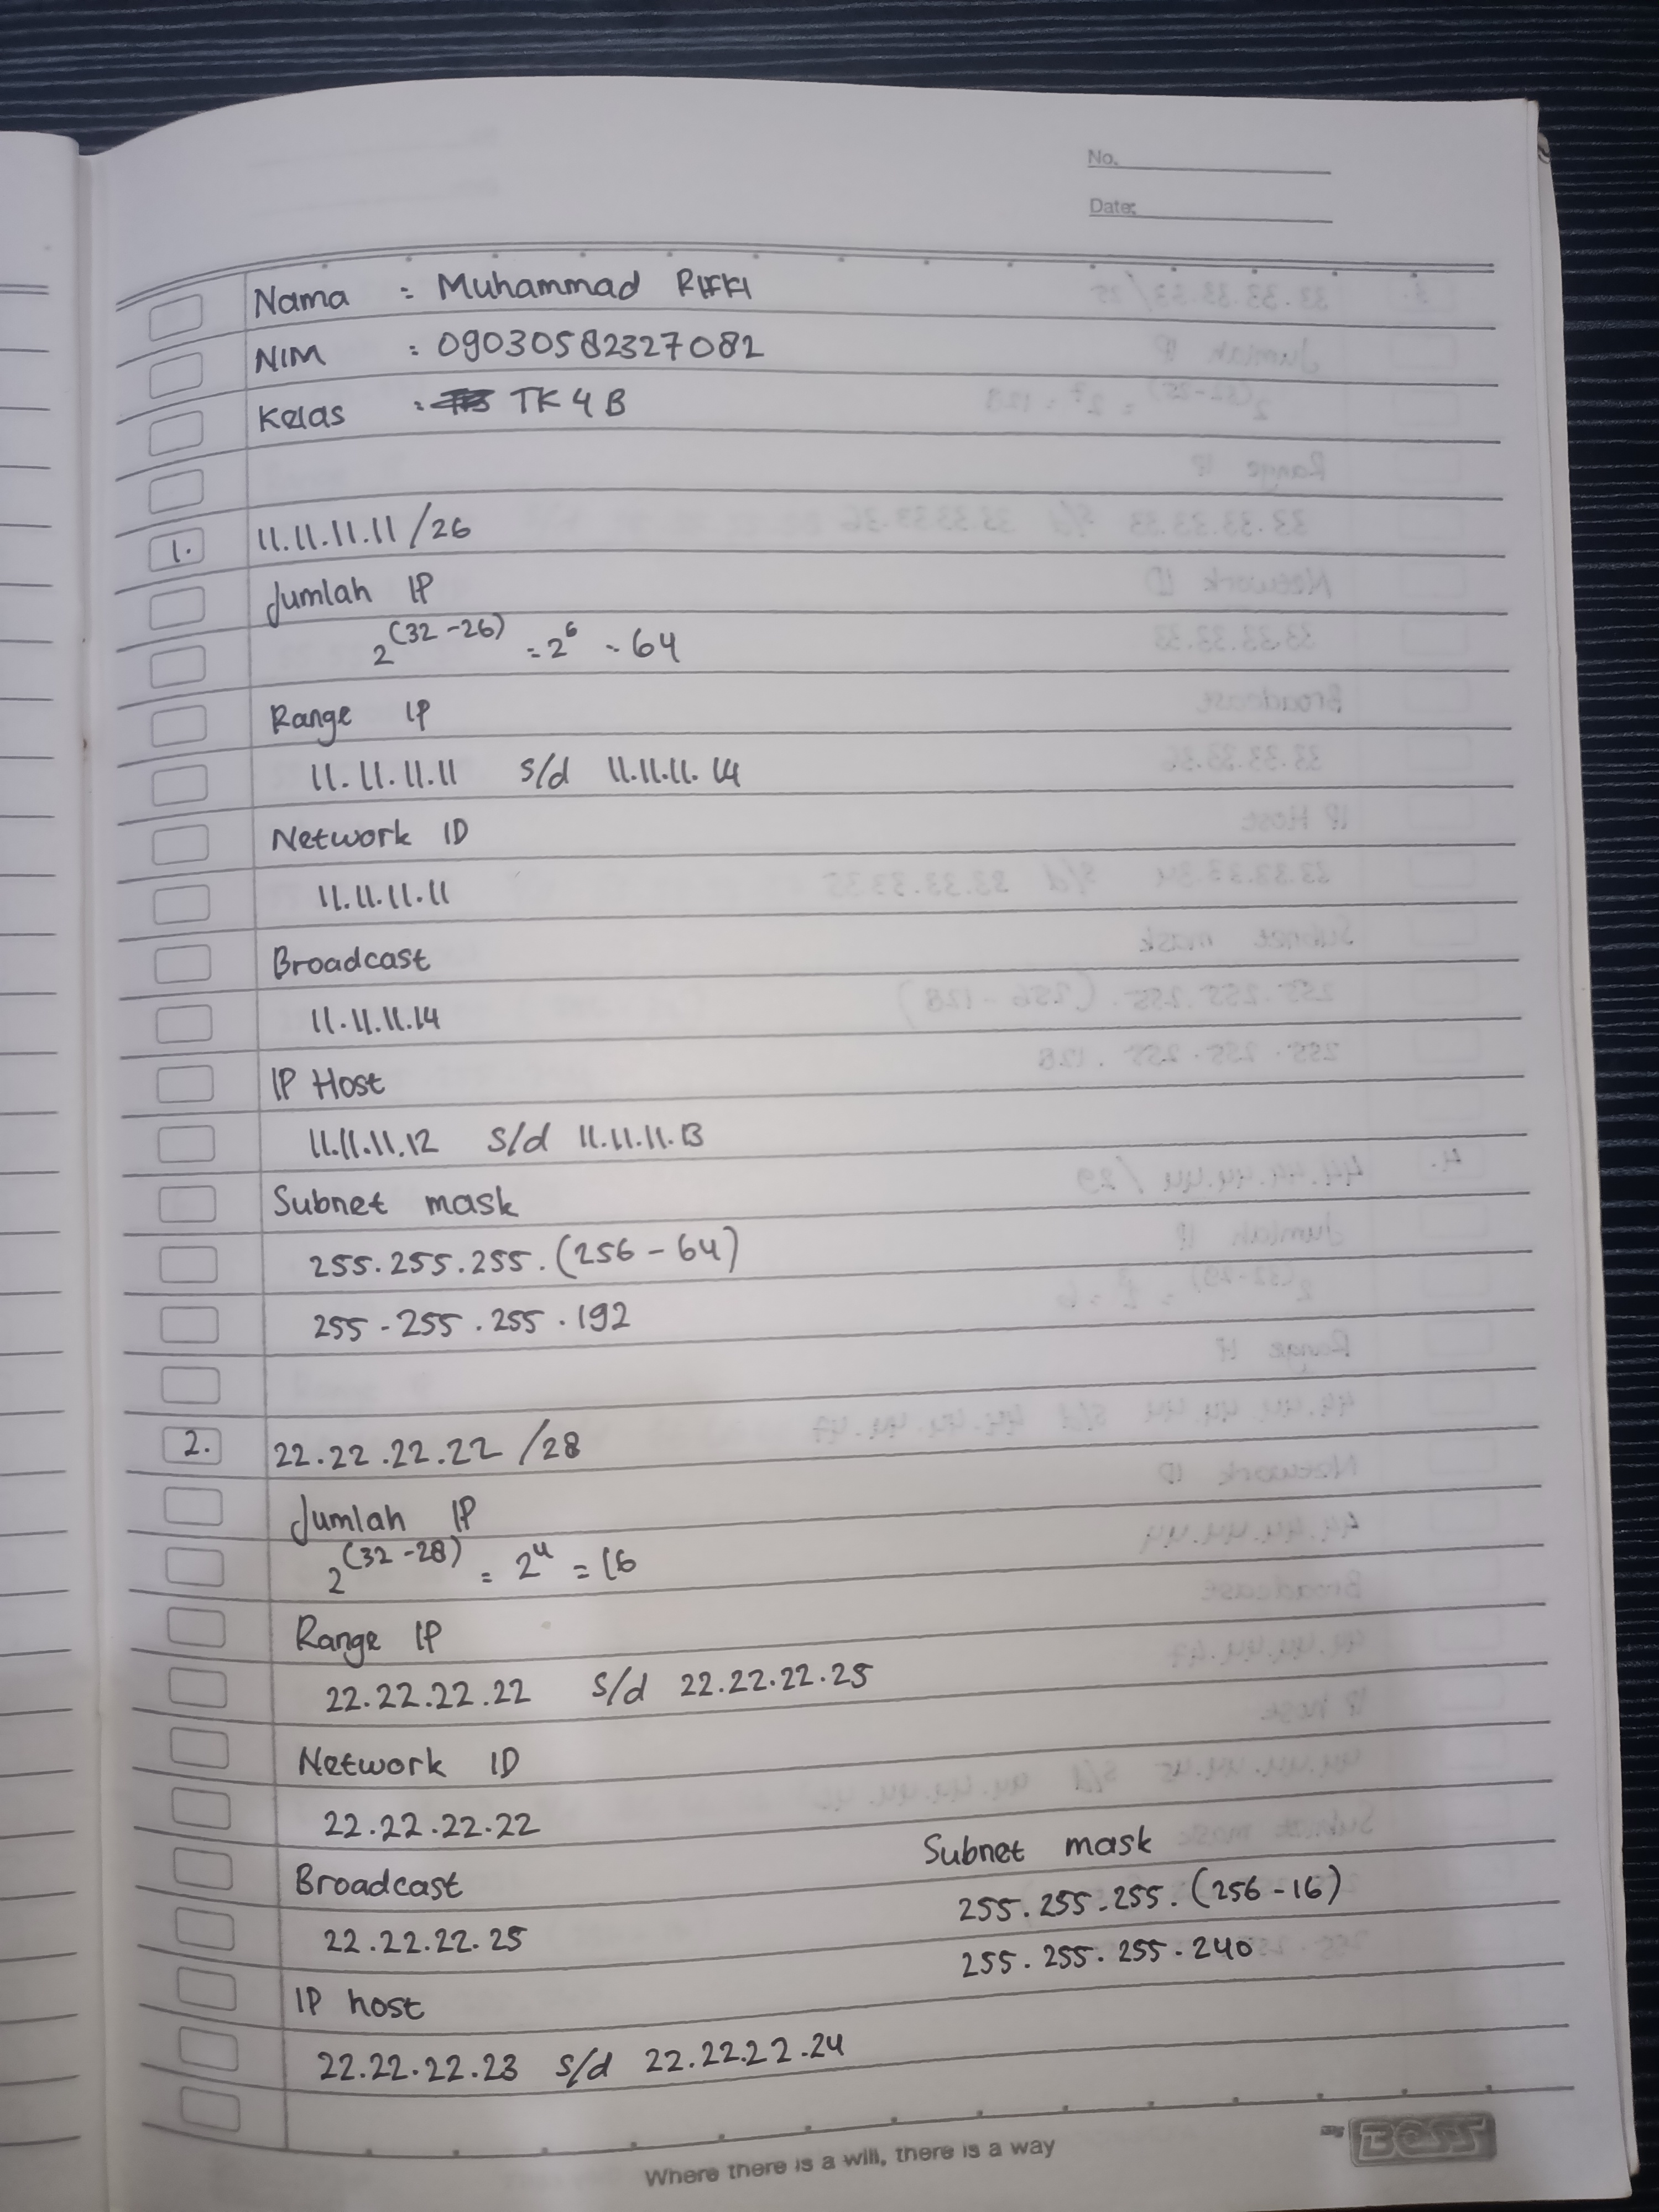 No.
Date:
Nama : Muhammad RIFKI
NIM : 09030582327082
Kelas : TK 4 B
1. 11.11.11.11 /26
Jumlah IP
2^(32-26) = 2^6 = 64
Range IP
11.11.11.11 s/d 11.11.11.14
Network ID
11.11.11.11
Broadcast
11.11.11.14
IP Host
11.11.11.12 s/d 11.11.11.13
Subnet mask
255.255.255.(256-64)
255-255.255.192
2. 22.22.22.22 /28
Jumlah IP
2^(32-28) = 2^4 = 16
Range IP
22.22.22.22 s/d 22.22.22.25
Network ID
22.22.22.22
Broadcast
22.22.22.25
IP host
22.22.22.23 s/d 22.22.22.24
Subnet mask
255.255.255.(256-16)
255.255.255.240
Where there is a will, there is a way
BOSS